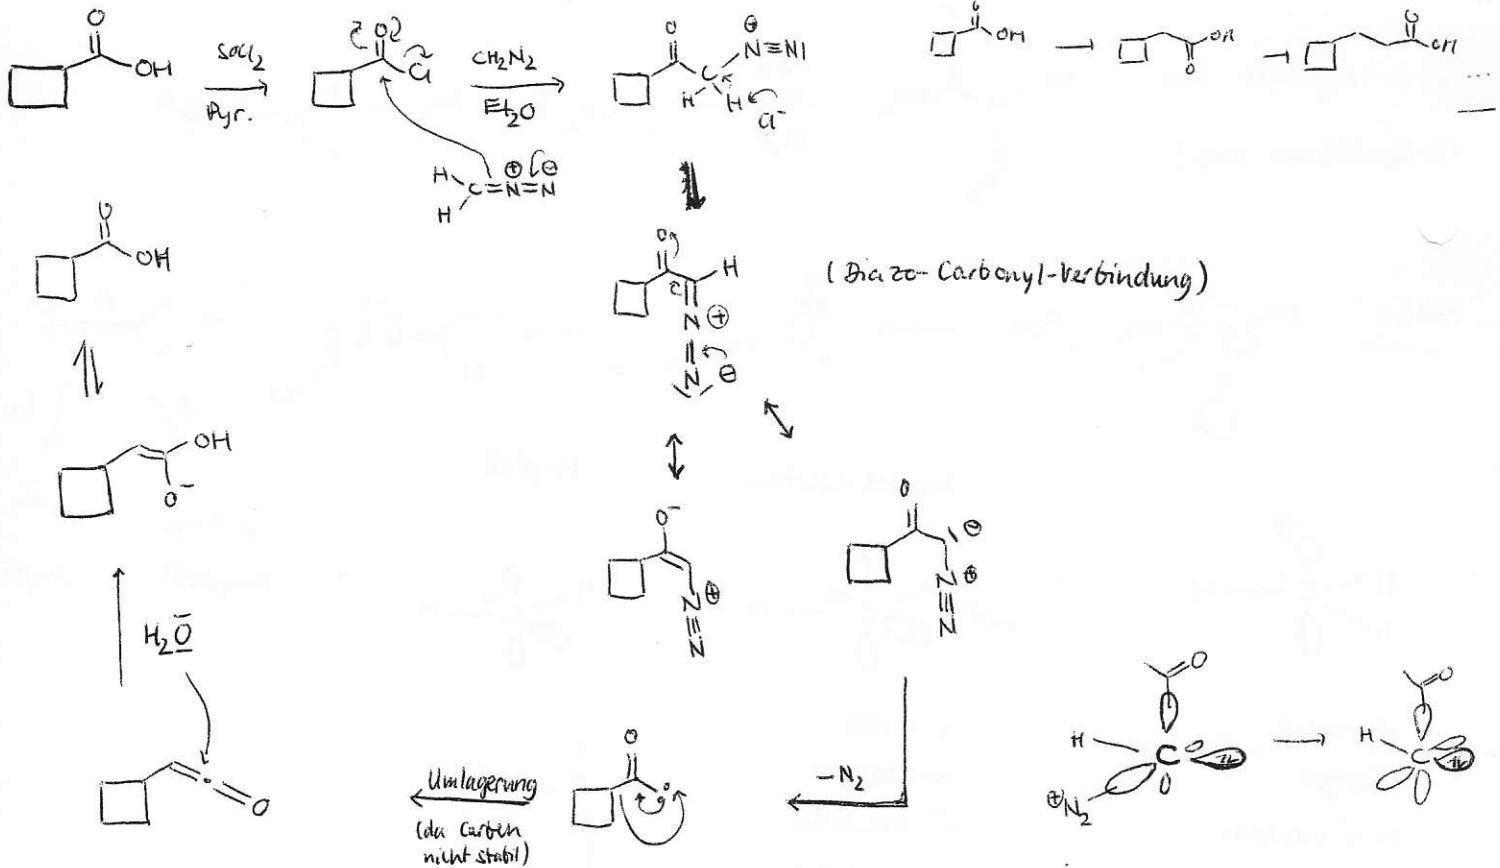 O
OH
SOCl₂
Pyr.
O
Cl
CH₂N₂
Et₂O
O
⊕
N≡NI
C
H
H
Cl⁻
O
OH
OH
O
O
OH
...
H
H
C=N=N
⊕
⊖
O
OH
O
H
N ⊕
N ⊖
(Diazo-Carbonyl-Verbindung)
OH
O⁻
O⁻
N ⊕
N
O
⊖
N ⊕
N
H₂O
O
Umlagerung
(da Carben
nicht stabil)
O
-N₂
O
H
C
⊕N₂
O
H
C